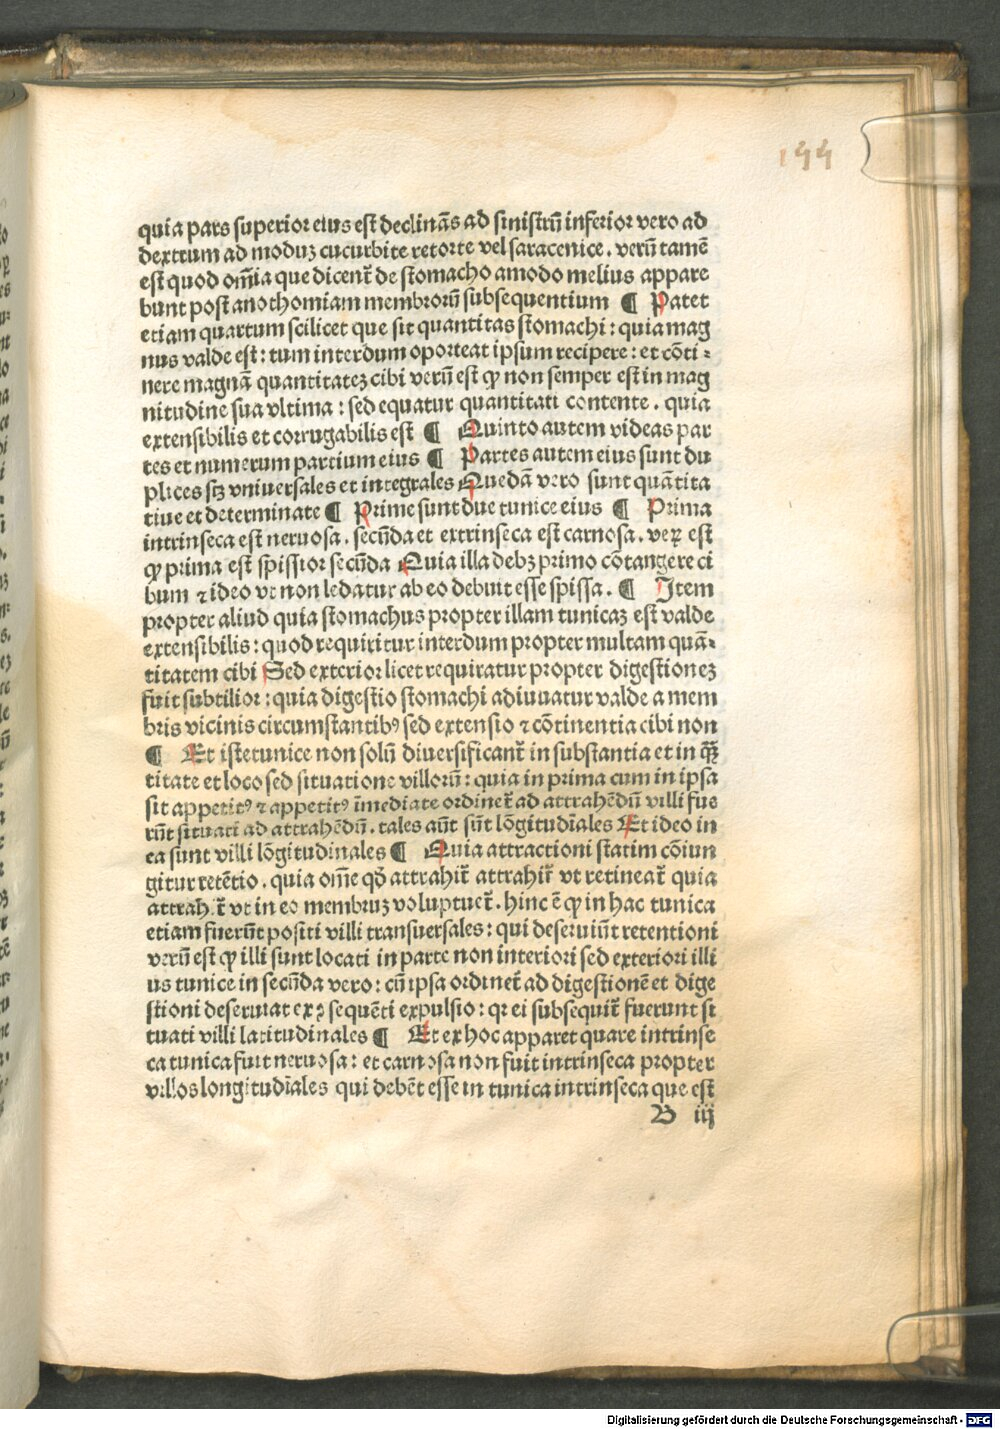 144
quia pars superior eius est declinãs ad sinistrũ inferior vero ad
dextrum ad moduꝫ cucurbite retorte vel saracenice. verũ tamẽ
est quod om̃ia que dicent̃ de stomacho amodo melius appare
bunt post anothomiam membrorũ subsequentium ¶ Patet
etiam quartum scilicet que sit quantitas stomachi: quia mag
nus valde est: tum interdum oporteat ipsum recipere: et cõti⸗
nere magnã quantitateꝫ cibi verũ est ꝙ non semper est in mag
nitudine sua vltima: sed equatur quantitati contente. quia
extensibilis et corrugabilis est ¶ Quinto autem videas par
tes et numerum partium eius ¶ Partes autem eius sunt du
plices sꝫ vniuersales et integrales Quedã vero sunt quãtita
tiue et determinate ¶ Prime sunt due tunice eius ¶ Prima
intrinseca est neruosa. secũda et extrinseca est carnosa. veꝝ est
ꝙ prima est spissior secũda Quia illa debꝫ primo cõtangere ci
bum ⁊ ideo vt non ledatur ab eo debuit esse spissa. ¶ Item
propter aliud quia stomachus propter illam tunicaꝫ est valde
extensibilis: quod requiritur interdum propter multam quã⸗
titatem cibi Sed exterior licet requiratur propter digestioneꝫ
fuit subtilior: quia digestio stomachi adiuuatur valde a mem
bris vicinis circumstantibꝰ sed extensio ⁊ cõtinentia cibi non
¶ Et iste tunice non solũ diuersificant̃ in substantia et in
titate et loco sed situatione villorũ: quia in prima cum in ipsa
sit appetitꝰ ⁊ appetitꝰ ĩmediate ordinet̃ ad attrahẽdũ villi fue
rũt situati ad attrahẽdũ. tales aũt sũt lõgitudĩales Et ideo in
ea sunt villi lõgitudinales ¶ Quia attractioni statim cõiun
gitur retẽtio. quia om̃e qđ attrahit̃ attrahit̃ vt retineat̃ quia
attrahit̃ vt in eo membruꝫ voluptuet̃. hinc ẽ ꝙ in hac tunica
etiam fuerũt positi villi transuersales: qui deseruiũt retentioni
verũ est ꝙ illi sunt locati in parte non interiori sed exteriori illi
us tunice in secũda vero: cũ ipsa ordinet̃ ad digestionẽ et dige
stioni deseruiat sequẽti expulsio: qr ei subsequit̃ fuerunt si
tuati villi latitudinales ¶ Et ex hoc apparet quare intrinse
ca tunica fuit neruosa: et carnosa non fuit intrinseca propter
villos longitudĩales qui debẽt esse in tunica intrinseca que est
B iij
Digitalisierung gefördert durch die Deutsche Forschungsgemeinschaft - DFG